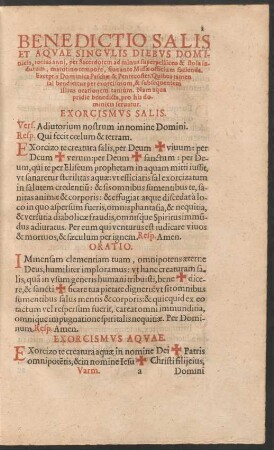 BENEDICTIO SALIS
ET AQVAE SINGVLIS DIEBVS DOMI
nicis, totius anni, per Sacerdotem ad minus superpelliceo & stola in
dutum, matutino tempore, fiat ante Missæ officium facienda.
Excepta Dominica Paschæ & Pentecostes. Quibus tantū
sal benedicitur per exorcismum, & subsequentem
illius orationem tantùm. Nam aqua
pridie benedicta, pro his do-
minicis seruatur.
EXORCISMVS SALIS.
Vers. Adiutorium nostrum in nomine Domini.
Resp. Qui fecit cœlum & terram.
EXorcizo te creatura salis, per Deum ✠ viuum: per
Deum ✠ verum: per Deum ✠ sanctum: per De-
um, qui te per Eliseum prophetam in aquam mitti iussit,
vt sanaretur sterilitas aquæ: vt efficiaris sal exorcizatum
in salutem credentiū: & sis omnibus te sumentibus, sa-
nitas animæ & corporis: & effugiat atque discedat à lo-
co in quo aspersum fueris, omnis phantasia, & nequitia,
& versutia diabolicæ fraudis, omnisque Spiritus immun
dus adiuratus. Per eum qui venturus est iudicare viuos
& mortuos, & sæculum per ignem. Resp. Amen.
ORATIO.
IMmensam clementiam tuam, omnipotens æterne
Deus, humiliter imploramus: vt hanc creaturam sa-
lis, quā in vsum generis humani tribuisti, bene ✠ dice-
re, & sancti ✠ ficare tua pietate digneris: vt sit omnibus
sumentibus salus mentis & corporis: & quicquid ex eo ta
ctum vel respersum fuerit, careat omni immunditia,
omnique impugnatione spiritalis nequitiæ. Per Domi-
num. Resp. Amen.
EXORCISMVS AQVAE.
EXorcizo te creatura aquæ in nomine Dei ✠ Patris
omnipotētis, & in nomine Iesu ✠ Christi filij eius,
Varm. a Domini